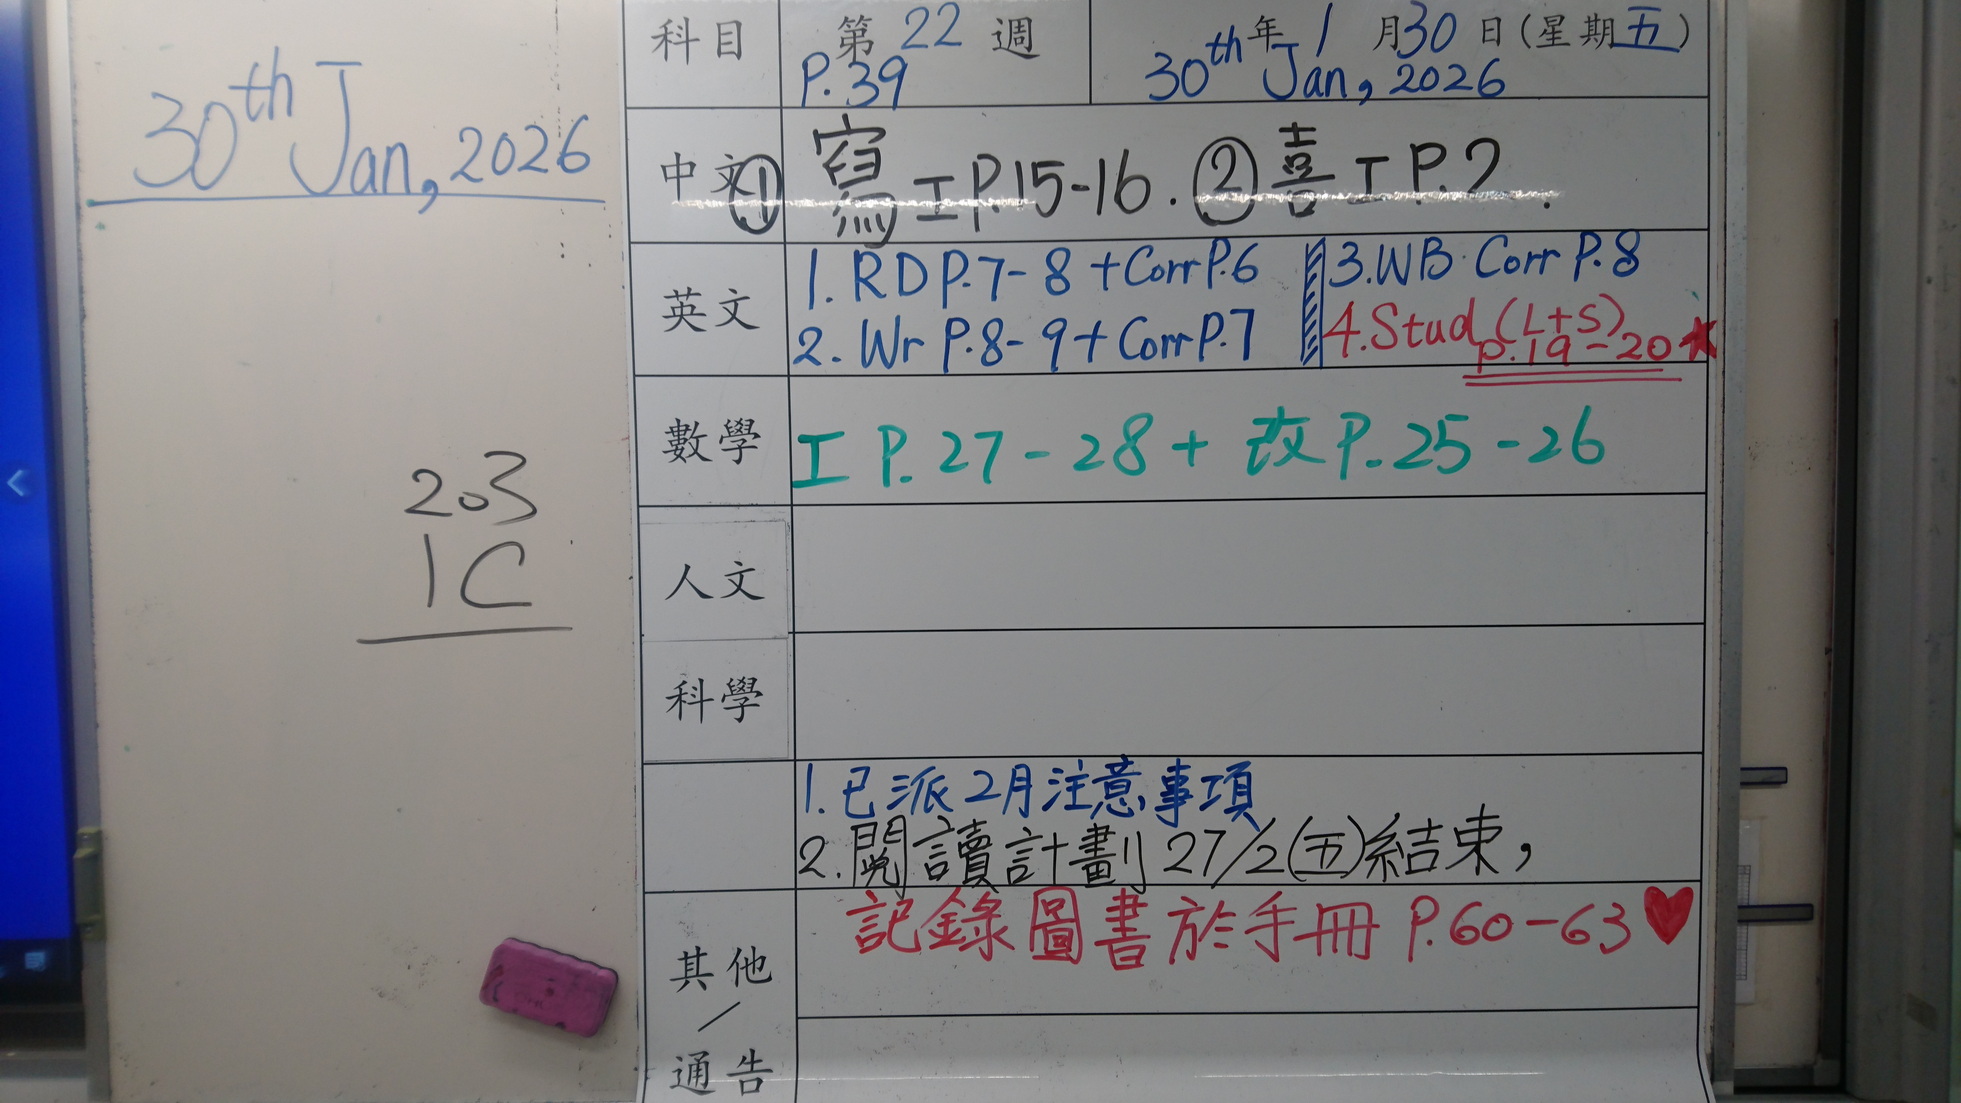 30th Jan, 2026
203
1C
科目 第 22 週 年 1 月 30 日 (星期五)
P.39 30th Jan, 2026
中文 ① 寫工P.15-16. ② 喜工P.7.
英文 1. RD P.7-8 + Corr P.6 3. WB Corr P.8
2. Wr P.8-9 + Corr P.7 4. Stud (L+S)
P.19-20
數學 工 P.27-28 + 改 P.25-26
人文
科學
1. 已派2月注意事項
2. 閱讀計劃 27/2(五)結束,
記錄圖書於手冊 P.60-63
其他
/
通告